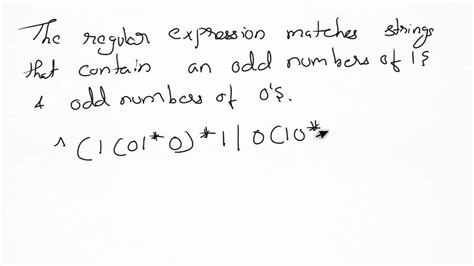 The regular expression matches strings
that contain an odd numbers of 1s
& odd numbers of 0's.
^ (1 (01*0)*1 | 0(10*